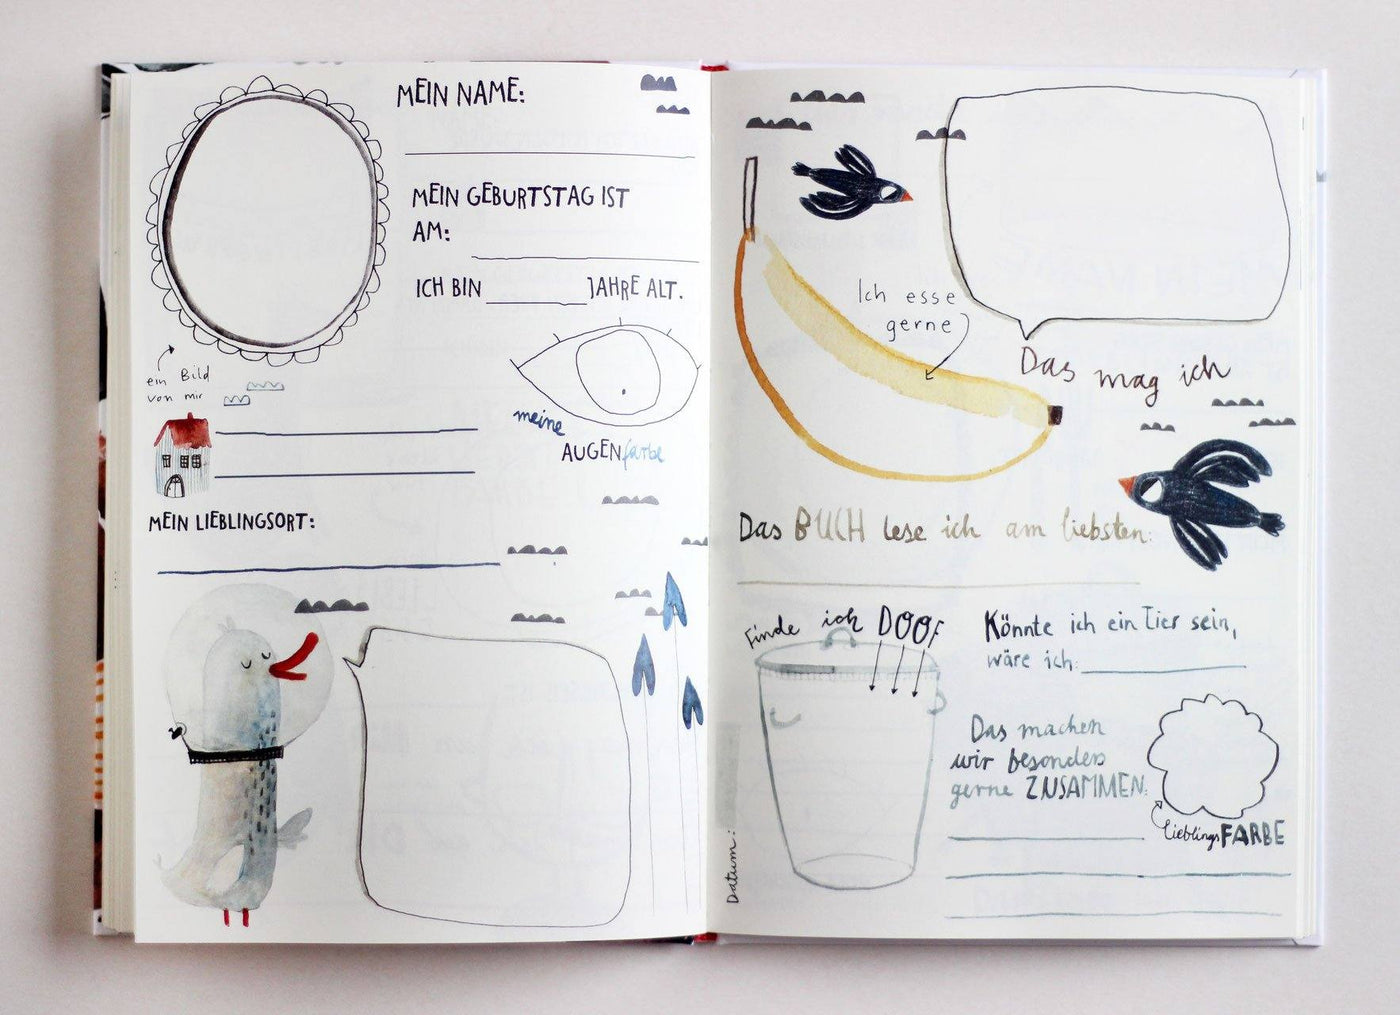 MEIN NAME:
MEIN GEBURTSTAG IST
AM:
ICH BIN JAHRE ALT.
ein Bild
von mir
meine
AUGENfarbe
MEIN LIEBLINGSORT:
Ich esse
gerne
Das mag ich
Das BUCH lese ich am liebsten:
Finde ich DOOF
Könnte ich ein Tier sein,
wäre ich:
Das machen
wir besonders
gerne ZUSAMMEN:
LieblingsFARBE
Datum: